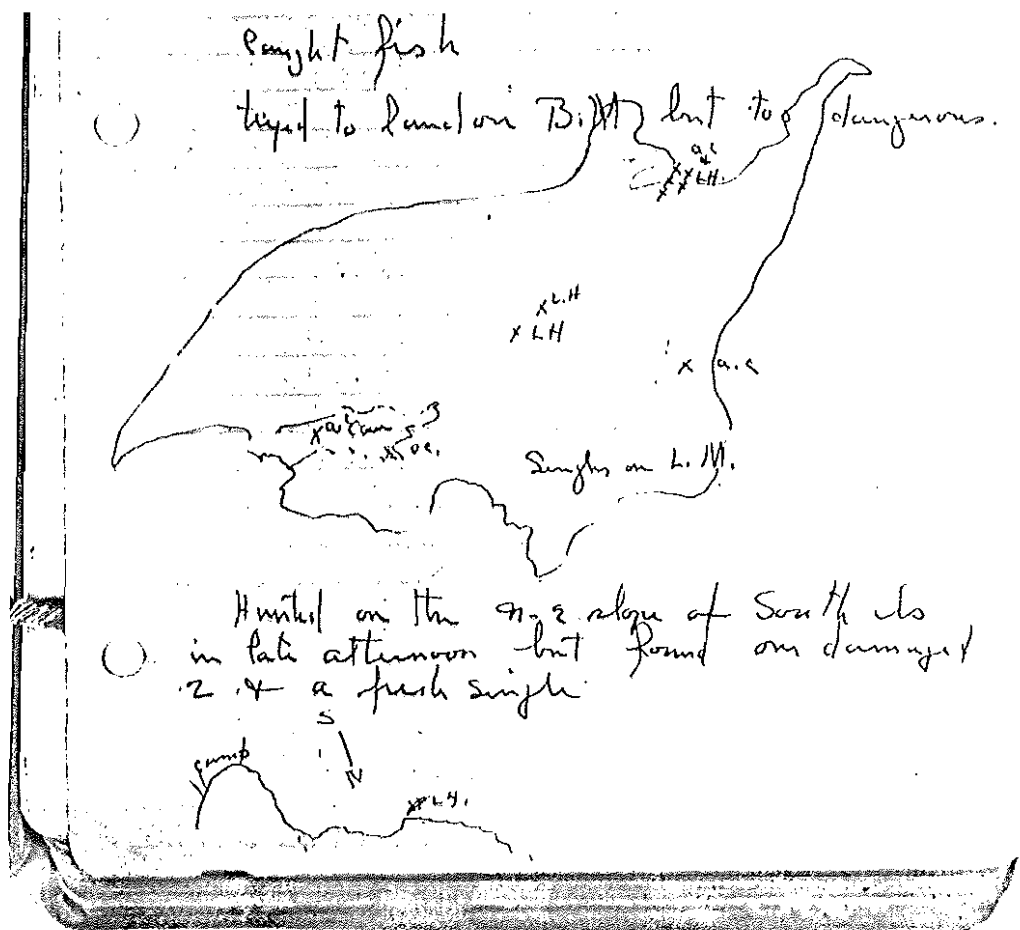 Caught fish
tryed to land on but to dangerous.
a.c
&
LH.
x L.H
x LH
x a.c
x a.c
Singles on L. M.
Hunted on the n-e slope of South Is
in late afternoon but found one damaged
2 & a fresh single
S
N
camp
L H.